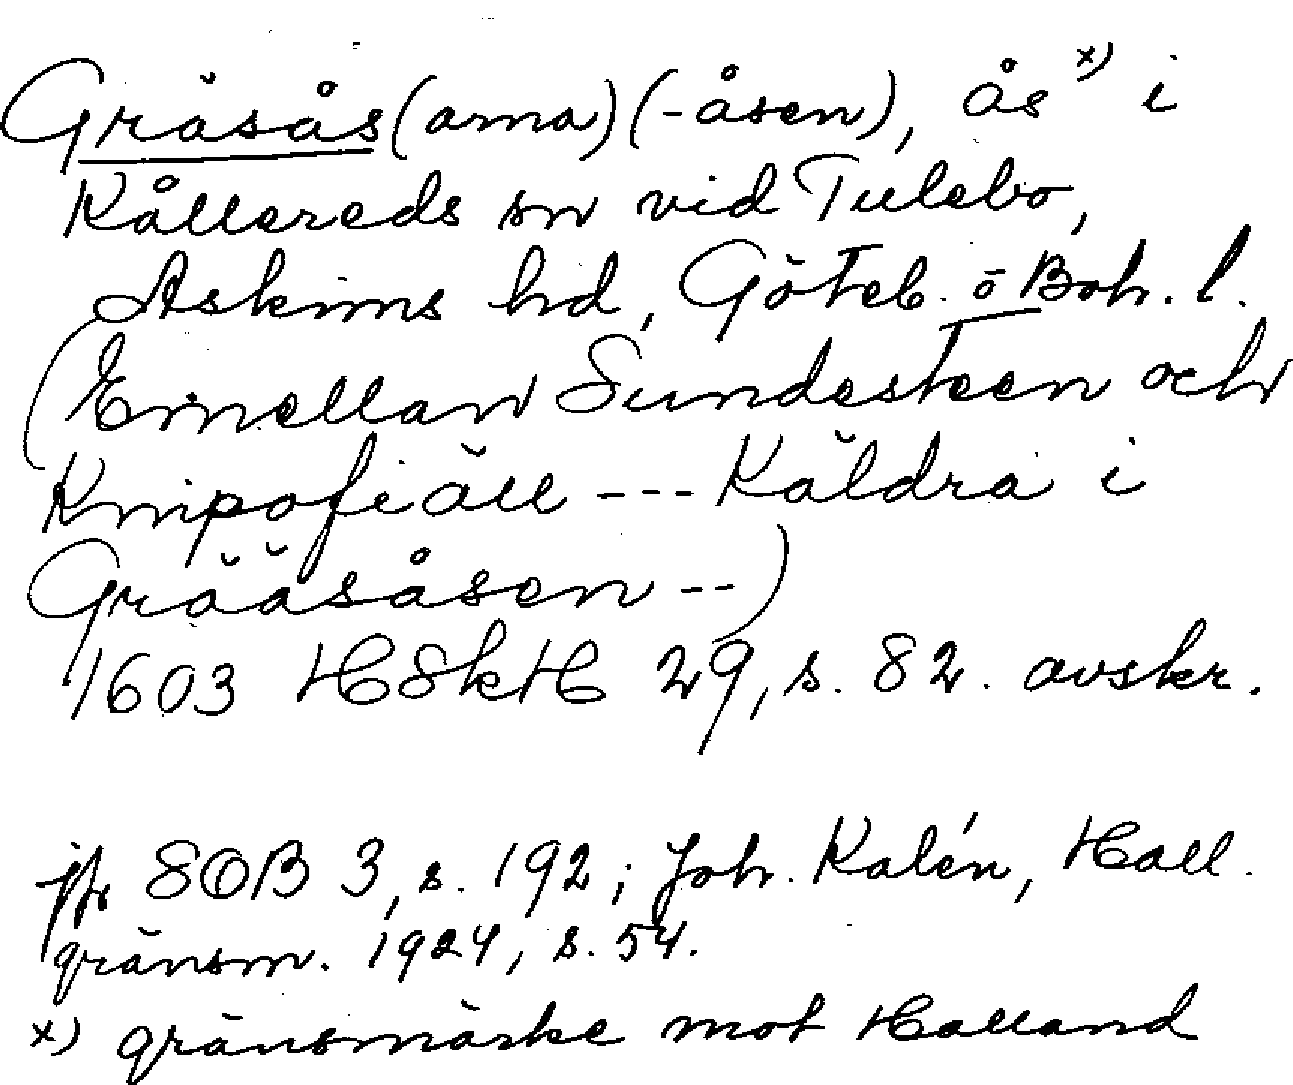 Gräsås(arna)(-åsen), ås x) i
Kållereds sn vid Tulebo,
Askims hd, Göteb. o Boh. l.
(Emellan Sundesteen och
Knipofiäll --- Käldra i
Grääsåsen --)
1603 HSkH 29, s. 82. avskr.
jfr SOB 3, s. 192; Joh. Kalén, Hall.
gränsm. 1924, s. 54.
x) gränsmärke mot Halland